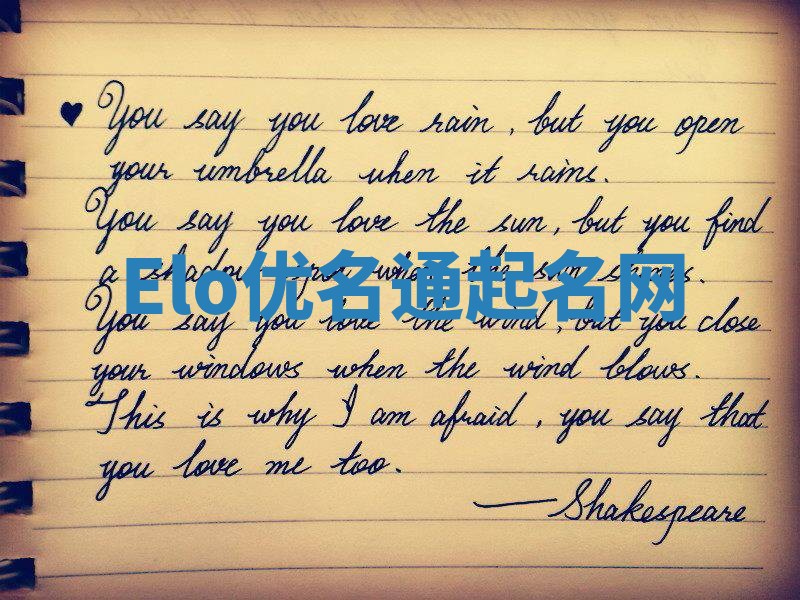 You say you love rain, but you open
your umbrella when it rains.
You say you love the sun, but you find
a shadow spot when the sun shines.
Elo优名通起名网
You say you love the wind, but you close
your windows when the wind blows.
This is why I am afraid, you say that
you love me too.
—Shakespeare